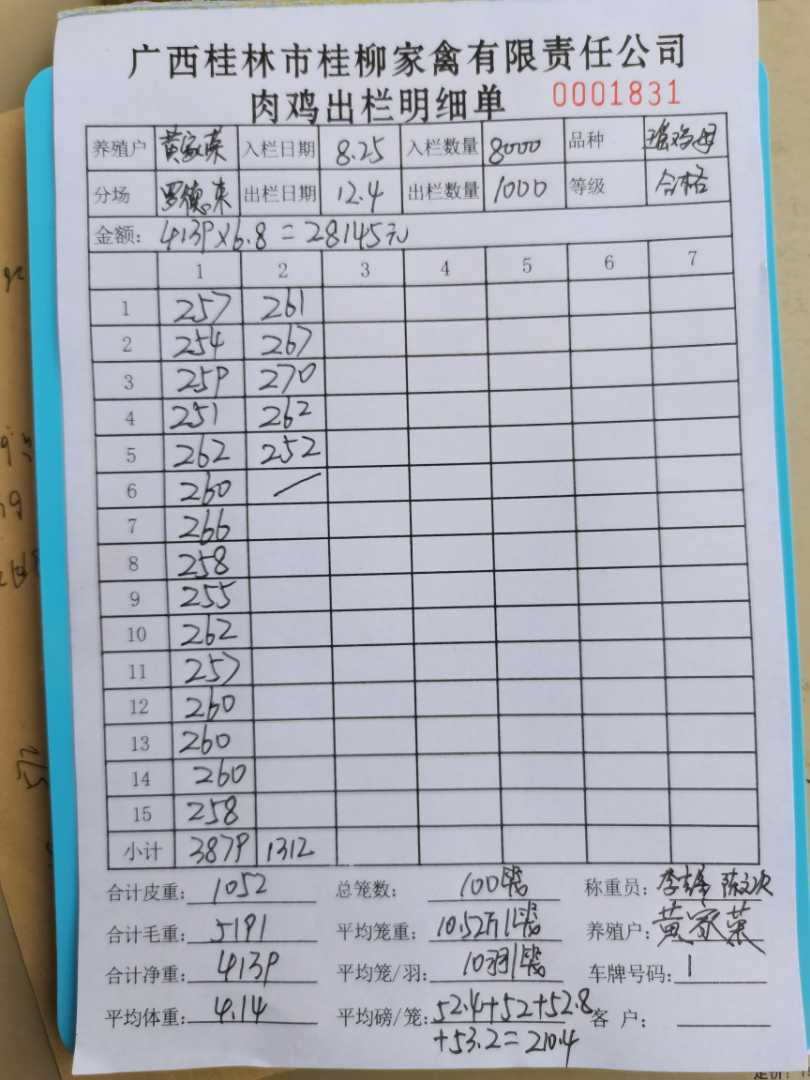 广西桂林市桂柳家禽有限责任公司
肉鸡出栏明细单 0001831
养殖户 黄家荣 入栏日期 8.25 入栏数量 8000 品种 瑶鸡母
分场 罗德来 出栏日期 12.4 出栏数量 1000 等级 合格
金额: 4139×6.8=28145元
1 2 3 4 5 6 7
1 257 261
2 254 267
3 259 270
4 251 262
5 262 252
6 260 /
7 266
8 258
9 255
10 262
11 257
12 260
13 260
14 260
15 258
小计 3879 1312
合计皮重: 1052 总笼数: 100笼 称重员:
合计毛重: 5191 平均笼重: 10.52斤/笼 养殖户: 黄家荣
合计净重: 4139 平均笼/羽: 10羽/笼 车牌号码: 1
平均体重: 4.14 平均磅/笼: 52.4+52+52.8 客 户:
+53.2=210.4